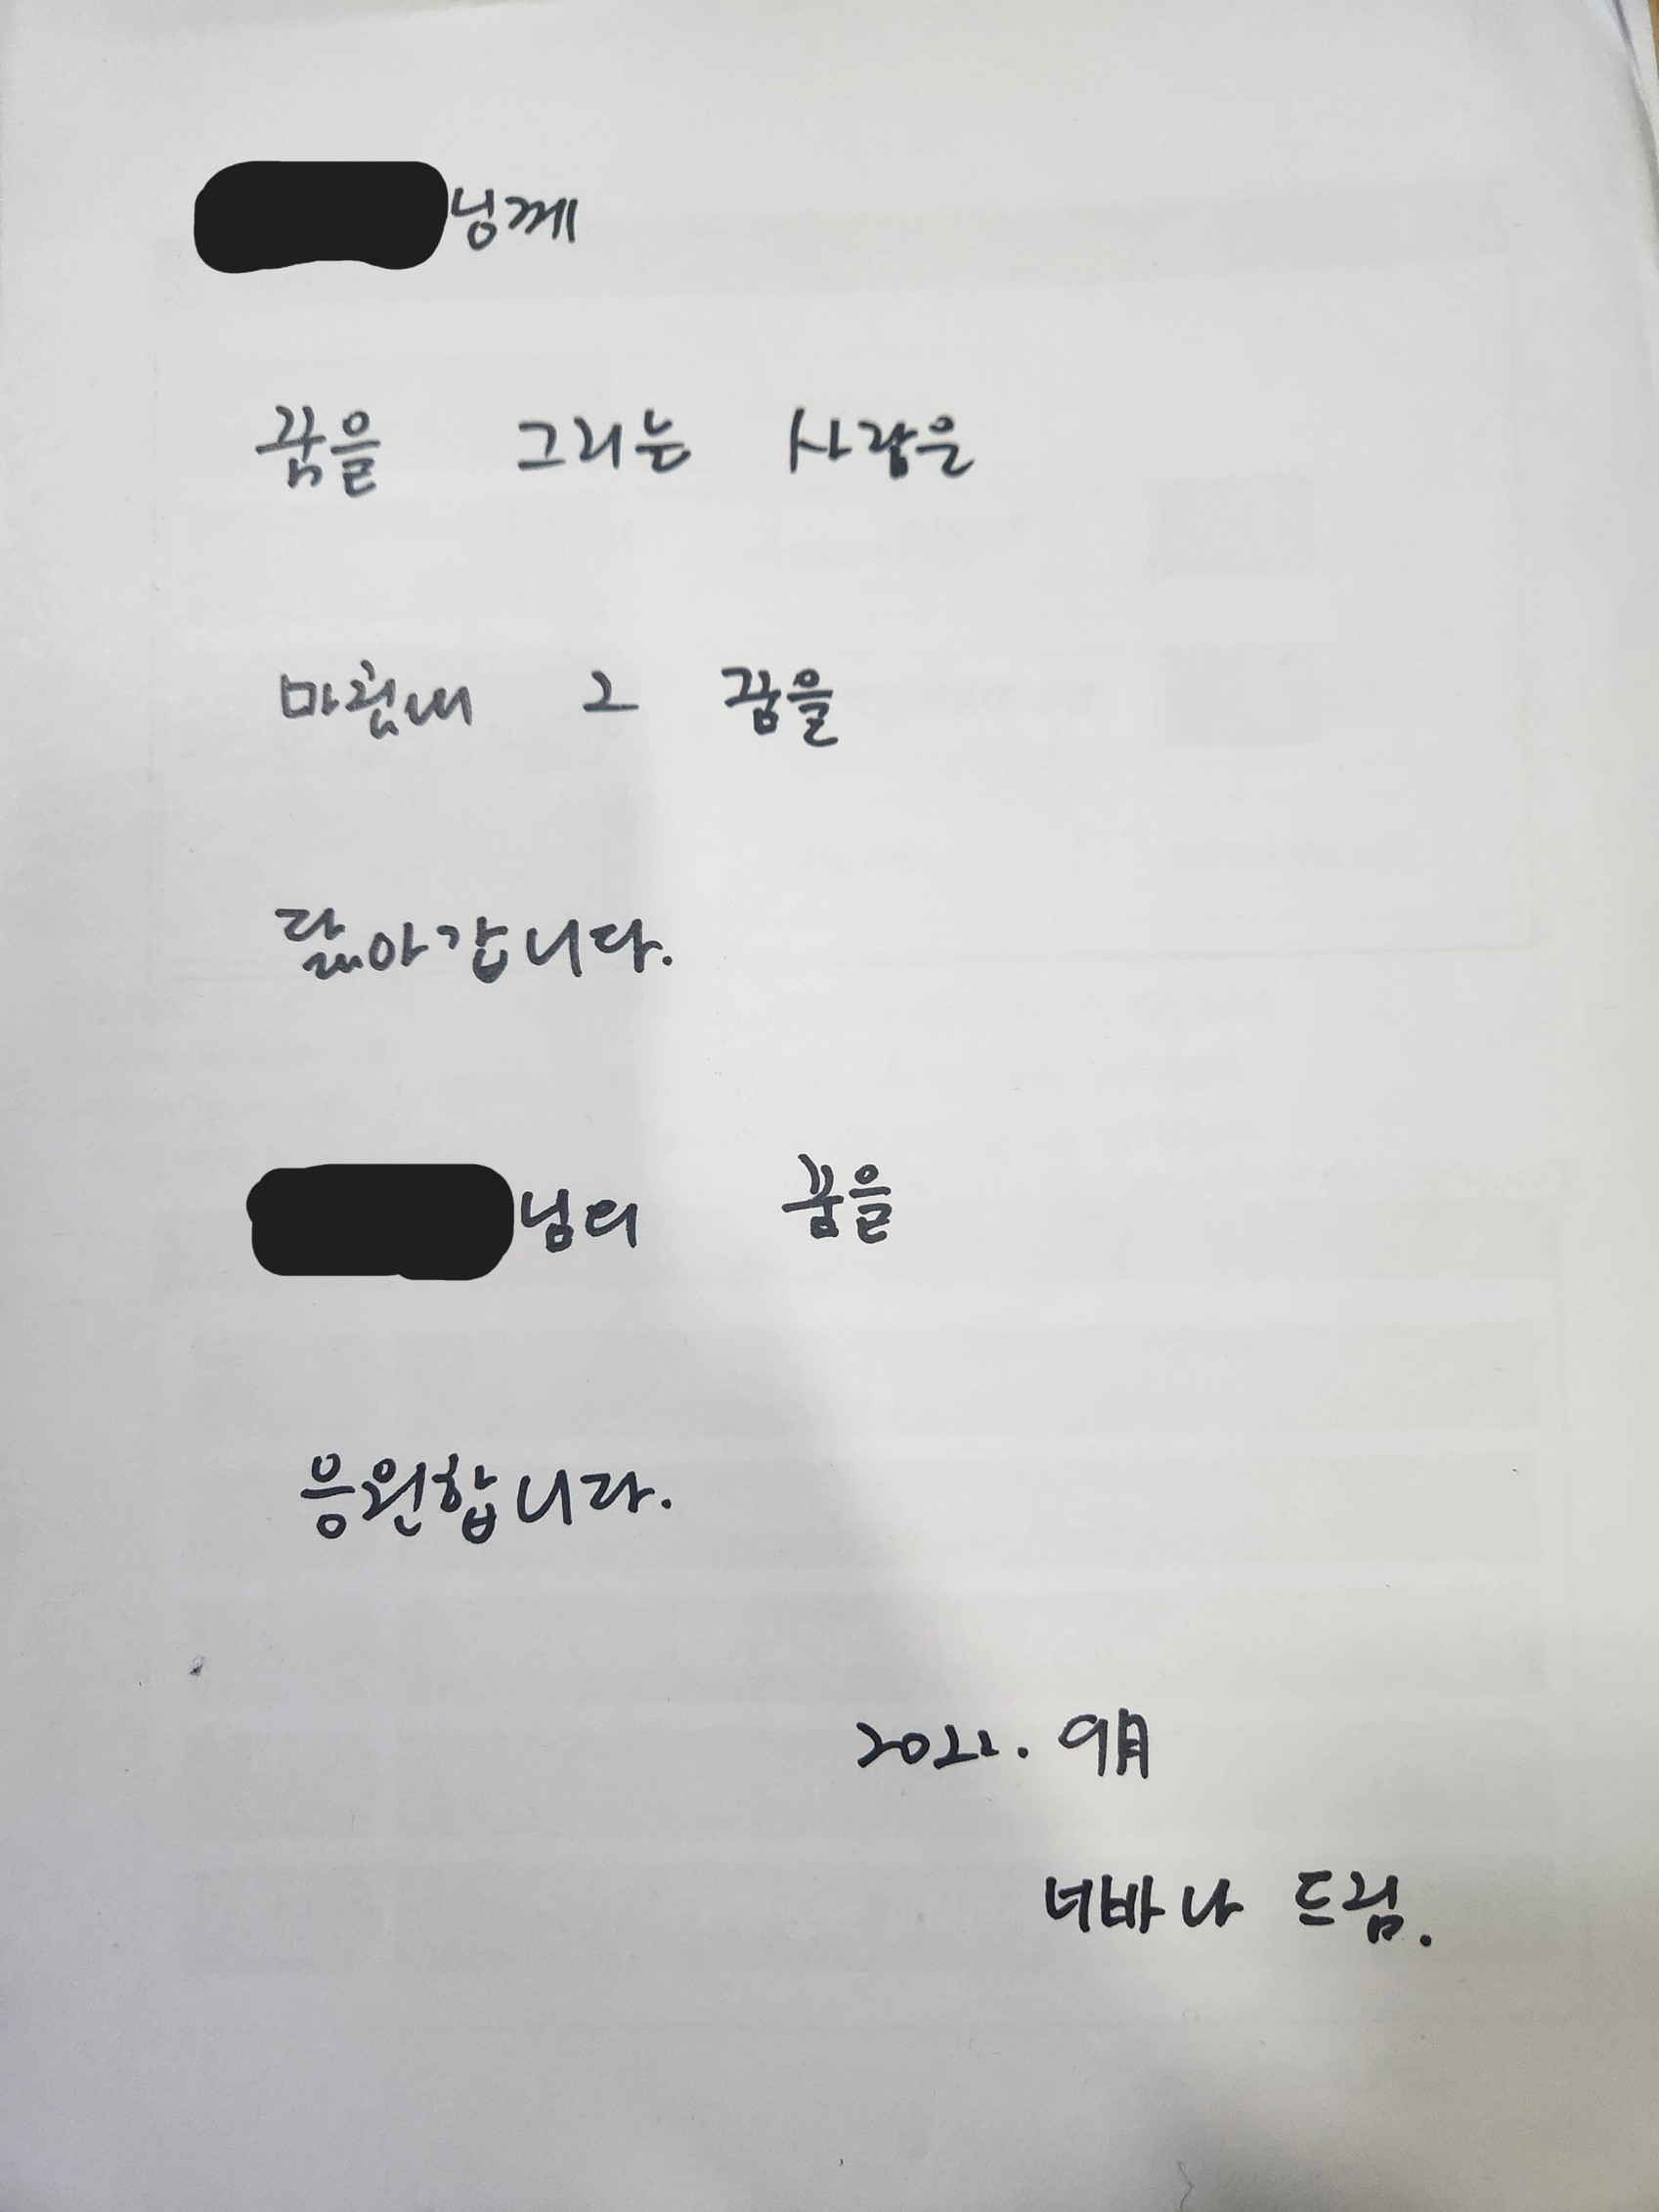 님께
꿈을 그리는 사람은
마침내 그 꿈을
닮아갑니다.
님의 꿈을
응원합니다.
2022. 9月
너바나 드림.